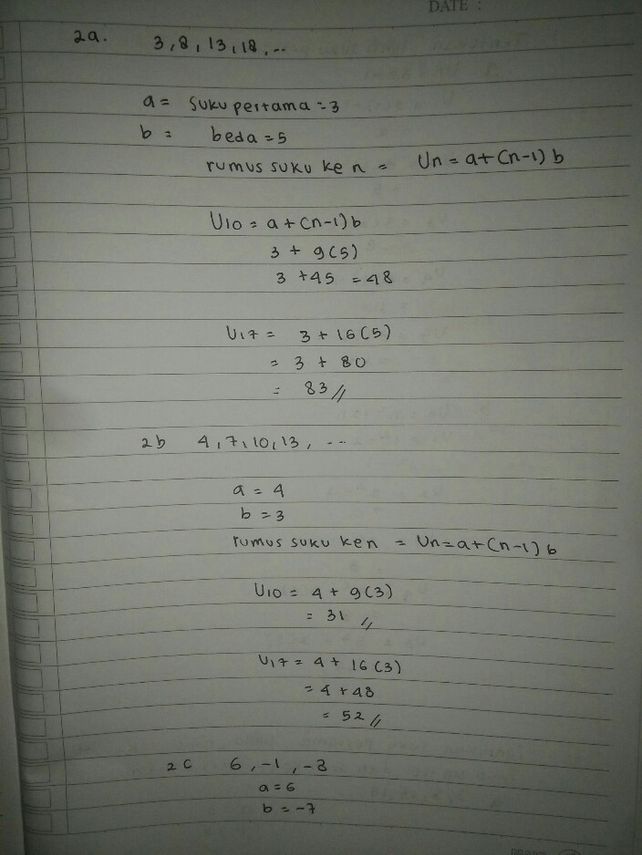 DATE :
2a. 3, 8, 13, 18, ...
a = suku pertama = 3
b = beda = 5
rumus suku ke n = Un = a + (n-1) b
U10 = a + (n-1) b
3 + 9(5)
3 + 45 = 48
U17 = 3 + 16(5)
= 3 + 80
= 83 //
2b 4, 7, 10, 13, ...
a = 4
b = 3
rumus suku ke n = Un = a + (n-1) b
U10 = 4 + 9(3)
= 31 //
U17 = 4 + 16(3)
= 4 + 48
= 52 //
2c 6, -1, -8
a = 6
b = -7